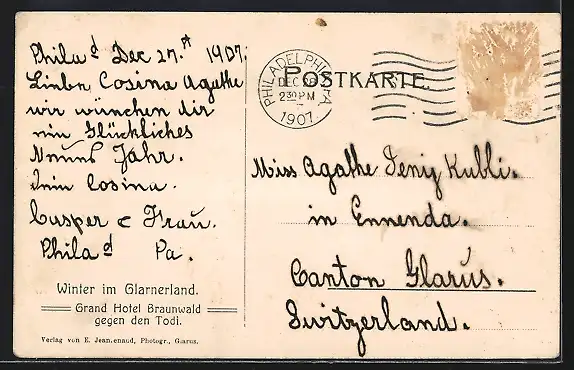 Phila d Dec 27. 1907.
Liebe Cosina Agathe
wir wünchen dir
ein Glückliches
Neues Jahr.
Dein Cosina.
Casper & Frau.
Phila d Pa.
Winter im Glarnerland.
Grand Hotel Braunwald
gegen den Tödi.
Verlag von E. Jeanrenaud, Photogr., Glarus.
POSTKARTE.
PHILADELPHIA, PA
DEC
230 PM
1907
Miss Agathe Jenny Kubli.
in Ennenda.
Canton Glarus.
Switzerland.